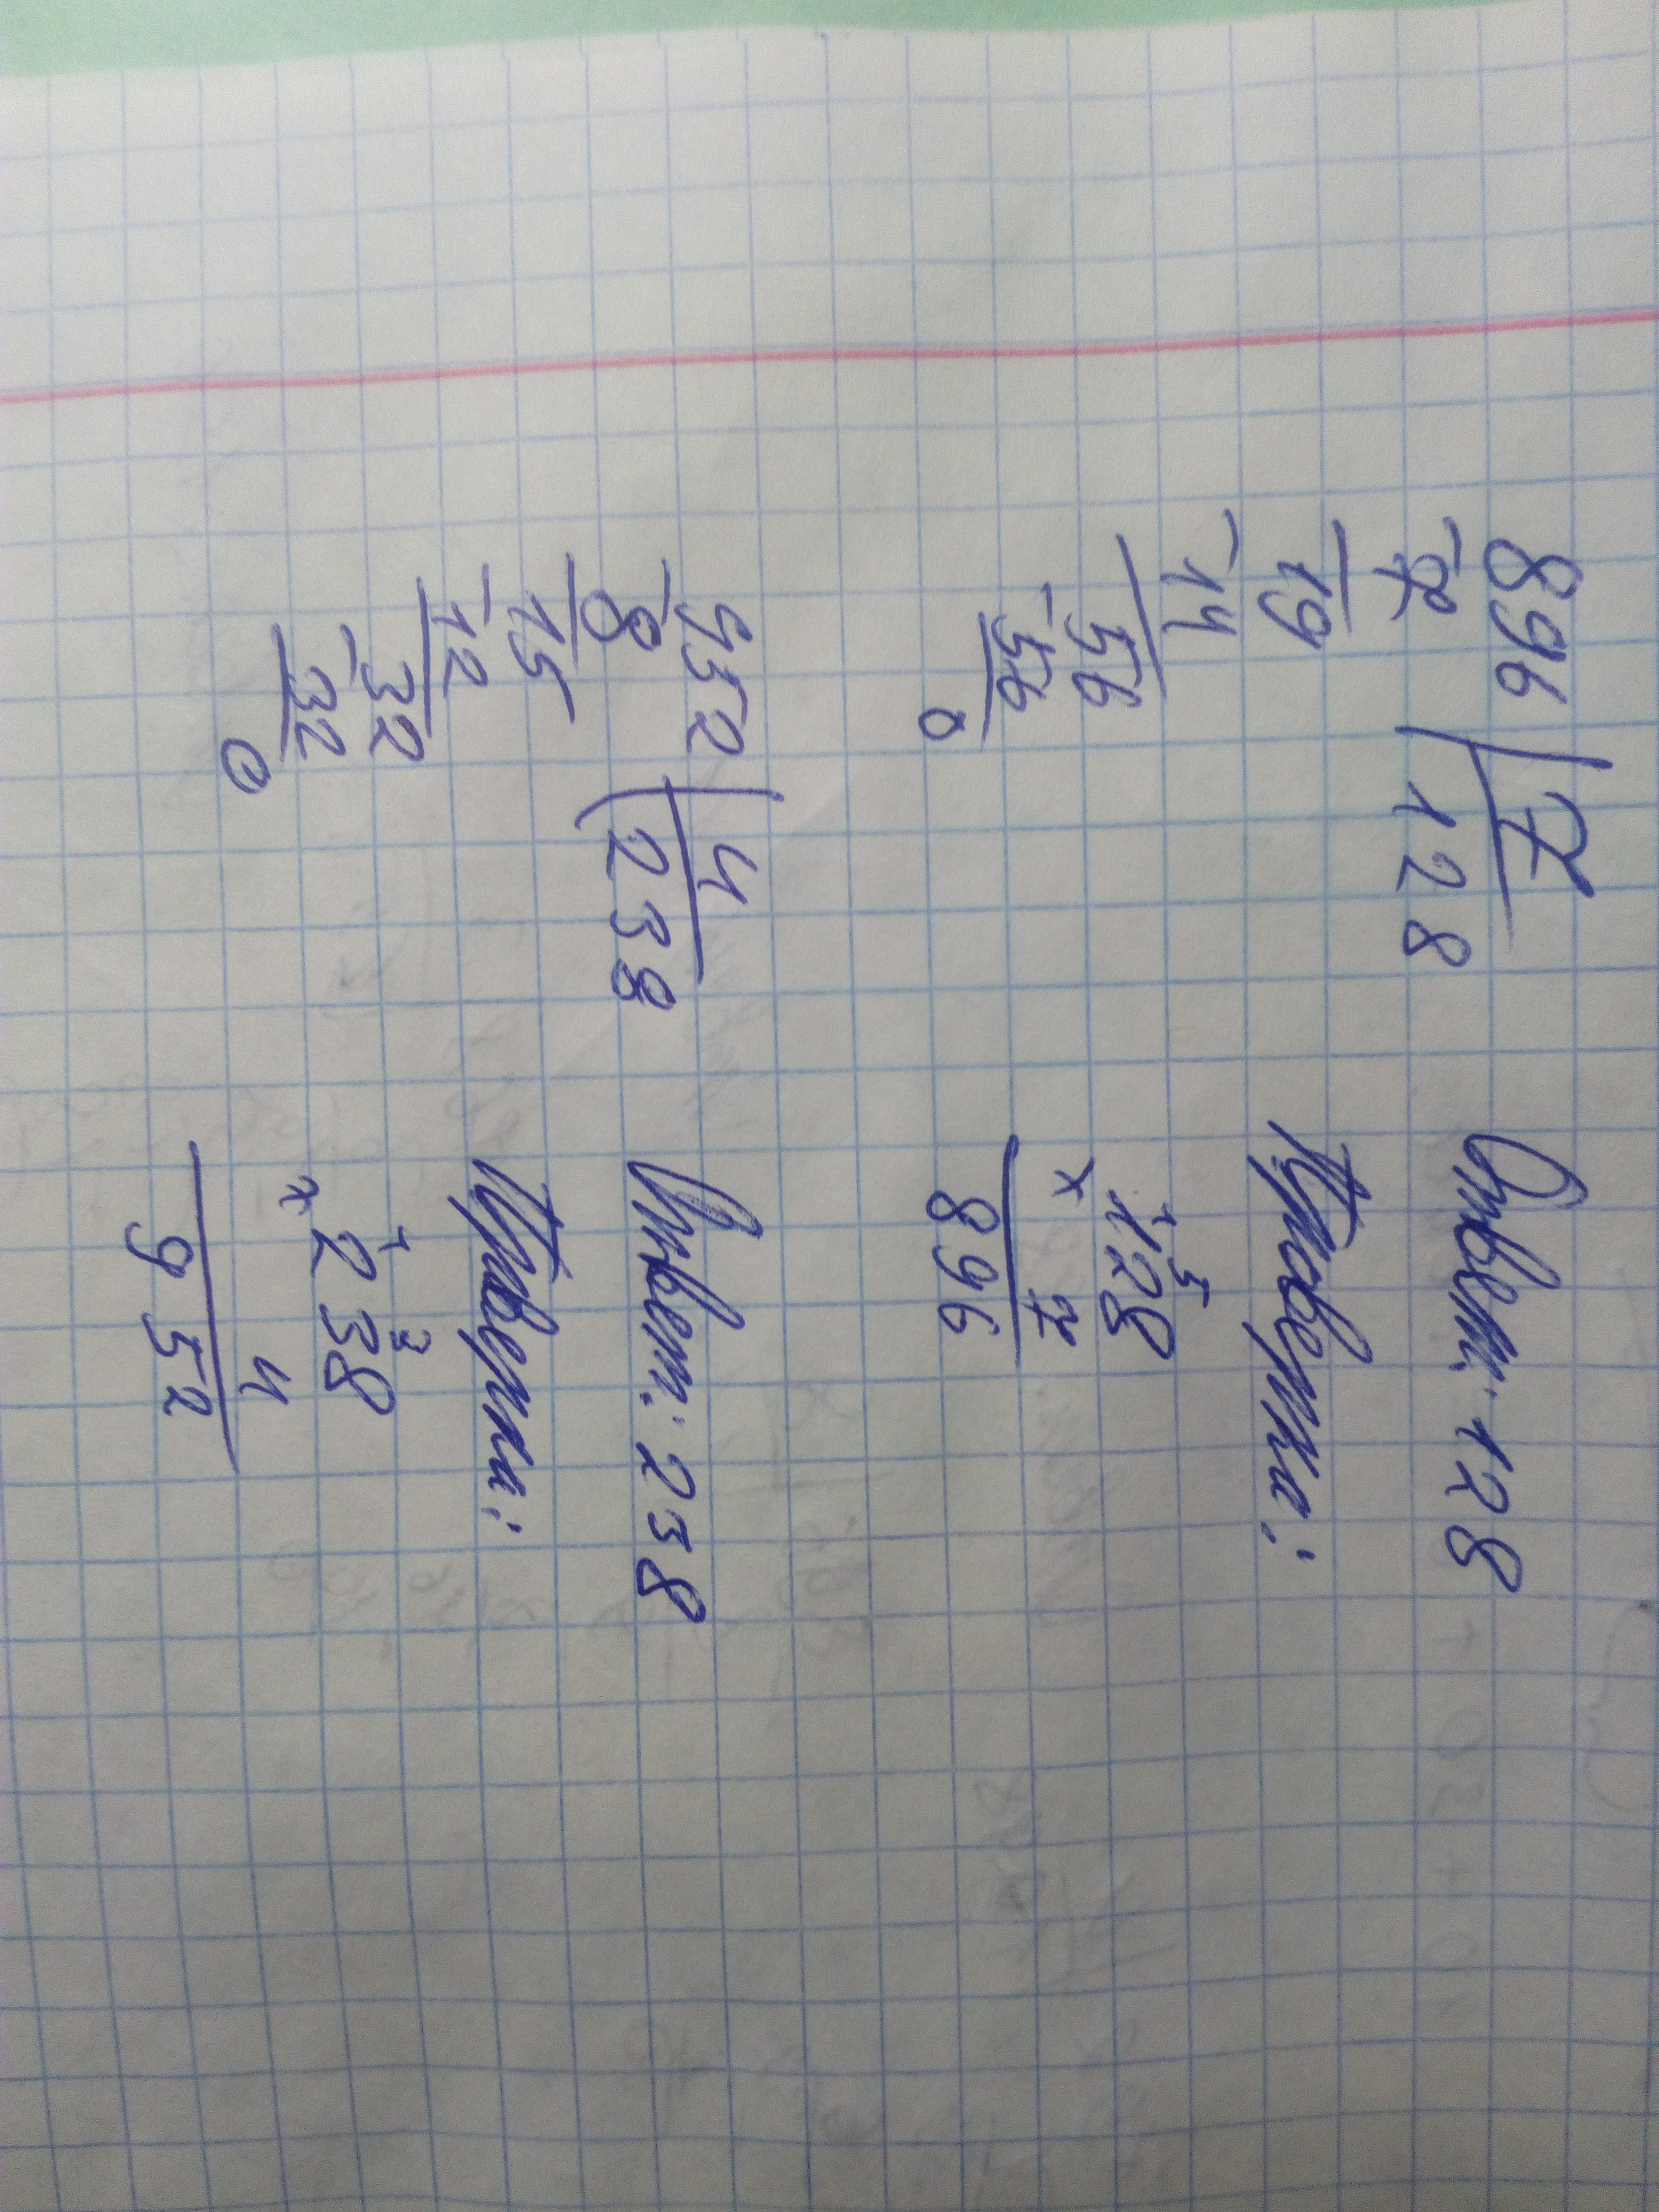 896 | 7
-7 128
19
-14
56
-56
0
Ответ: 128
Проверка:
1 5
128
x 7
896
952 | 4
-8 238
15
-12
32
-32
0
Ответ: 238
Проверка:
1 3
x 238
4
952